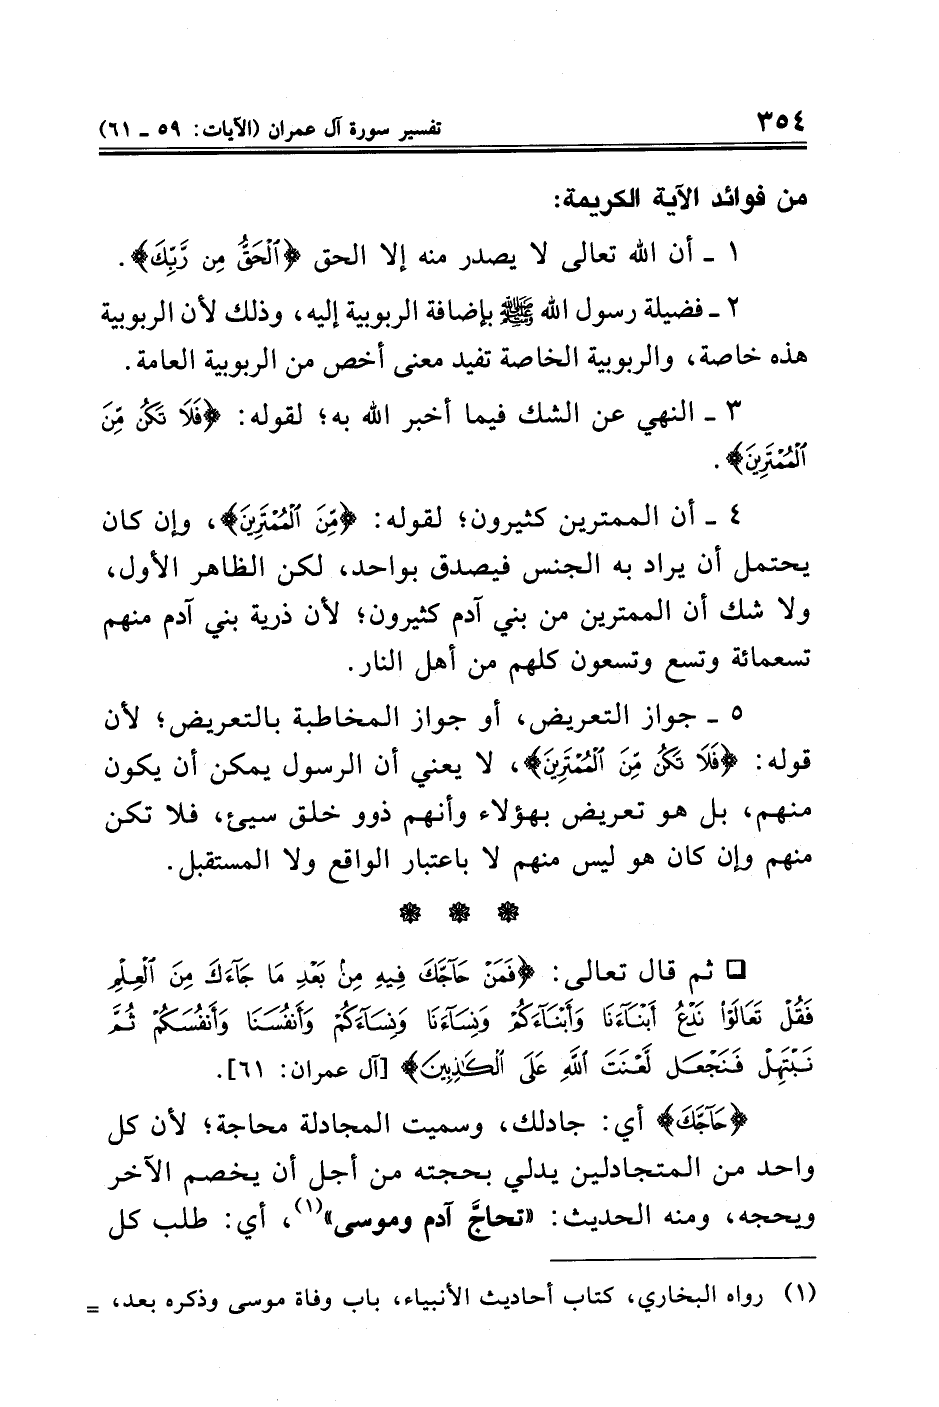 ٣٥٤ تفسير سورة آل عمران (الآيات: ٥٩ ـ ٦١)
من فوائد الآية الكريمة:
١ ـ أن الله تعالى لا يصدر منه إلا الحق ﴿ٱلْحَقُّ مِن رَّبِّكَ﴾.
٢ ـ فضيلة رسول الله ﷺ بإضافة الربوبية إليه، وذلك لأن الربوبية
هذه خاصة، والربوبية الخاصة تفيد معنى أخص من الربوبية العامة.
٣ ـ النهي عن الشك فيما أخبر الله به؛ لقوله: ﴿فَلَا تَكُن مِّنَ
ٱلْمُمْتَرِينَ﴾.
٤ ـ أن الممترين كثيرون؛ لقوله: ﴿مِّنَ ٱلْمُمْتَرِينَ﴾، وإن كان
يحتمل أن يراد به الجنس فيصدق بواحد، لكن الظاهر الأول،
ولا شك أن الممترين من بني آدم كثيرون؛ لأن ذرية بني آدم منهم
تسعمائة وتسع وتسعون كلهم من أهل النار.
٥ ـ جواز التعريض، أو جواز المخاطبة بالتعريض؛ لأن
قوله: ﴿فَلَا تَكُن مِّنَ ٱلْمُمْتَرِينَ﴾، لا يعني أن الرسول يمكن أن يكون
منهم، بل هو تعريض بهؤلاء وأنهم ذوو خلق سيئ، فلا تكن
منهم وإن كان هو ليس منهم لا باعتبار الواقع ولا المستقبل.
❁ ❁ ❁
□ ثم قال تعالى: ﴿فَمَنْ حَآجَّكَ فِيهِ مِنۢ بَعْدِ مَا جَآءَكَ مِنَ ٱلْعِلْمِ
فَقُلْ تَعَالَوْا۟ نَدْعُ أَبْنَآءَنَا وَأَبْنَآءَكُمْ وَنِسَآءَنَا وَنِسَآءَكُمْ وَأَنفُسَنَا وَأَنفُسَكُمْ ثُمَّ
نَبْتَهِلْ فَنَجْعَل لَّعْنَتَ ٱللَّهِ عَلَى ٱلْكَٰذِبِينَ﴾ [آل عمران: ٦١].
﴿حَآجَّكَ﴾ أي: جادلك، وسميت المجادلة محاجة؛ لأن كل
واحد من المتجادلين يدلي بحجته من أجل أن يخصم الآخر
ويحجه، ومنه الحديث: «تحاجَّ آدم وموسى»(١)، أي: طلب كل
(١) رواه البخاري، كتاب أحاديث الأنبياء، باب وفاة موسى وذكره بعد، =